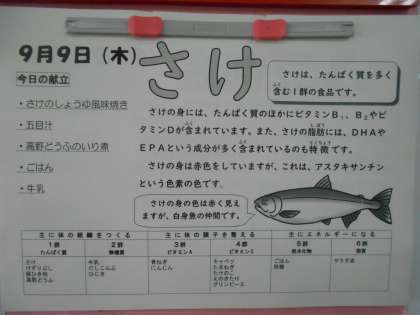 9月9日（木）
さけ
今日の献立
・さけのしょうゆ風味焼き
・五目汁
・高野とうふのいり煮
・ごはん
・牛乳
さけは、たんぱく質を多く
含む1群の食品です。
さけの身には、たんぱく質のほかにビタミンB₁、B₂やビ
タミンDが含まれています。また、さけの脂肪には、DHAや
EPAという成分が多く含まれているのも特徴です。
さけの身は赤色をしていますが、これは、アスタキサンチン
という色素の色です。
さけの身の色は赤く見え
ますが、白身魚の仲間です。
主に体の組織をつくる 主に体の調子を整える 主にエネルギーになる
1群 2群 3群 4群 5群 6群
たんぱく質 無機質 ビタミンA ビタミンC 炭水化物 脂質
さけ 牛乳 青菜 キャベツ ごはん サラダ油
けずりぶし だしこんぶ にんじん たまねぎ 砂糖
鶏ひき肉 ひじき たけのこ
高野とうふ えのきたけ
グリンピース